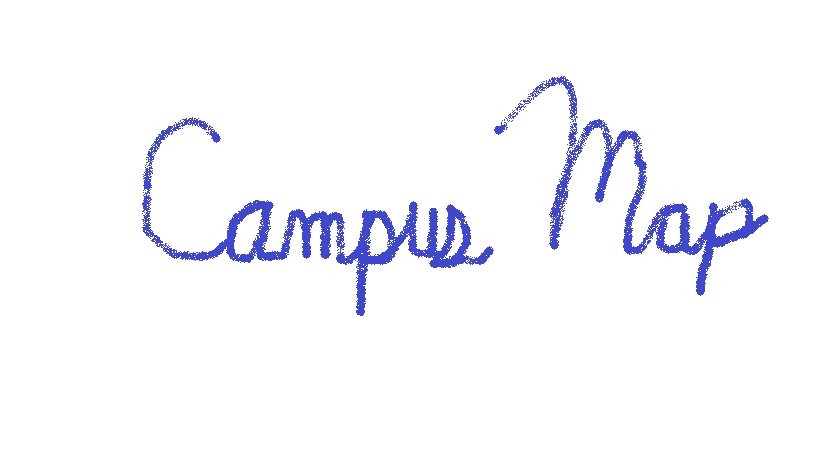 Campus Map